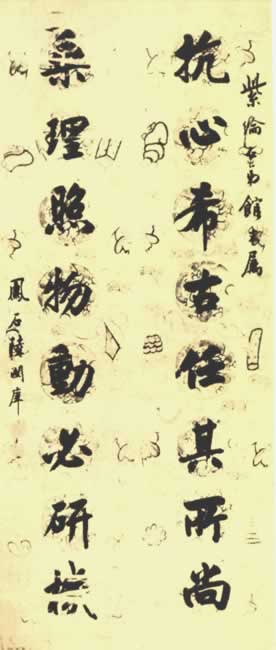 紫綸弟館丈属
抗心希古任其所尚
乘理照物動必研機
鳳石陸潤庠